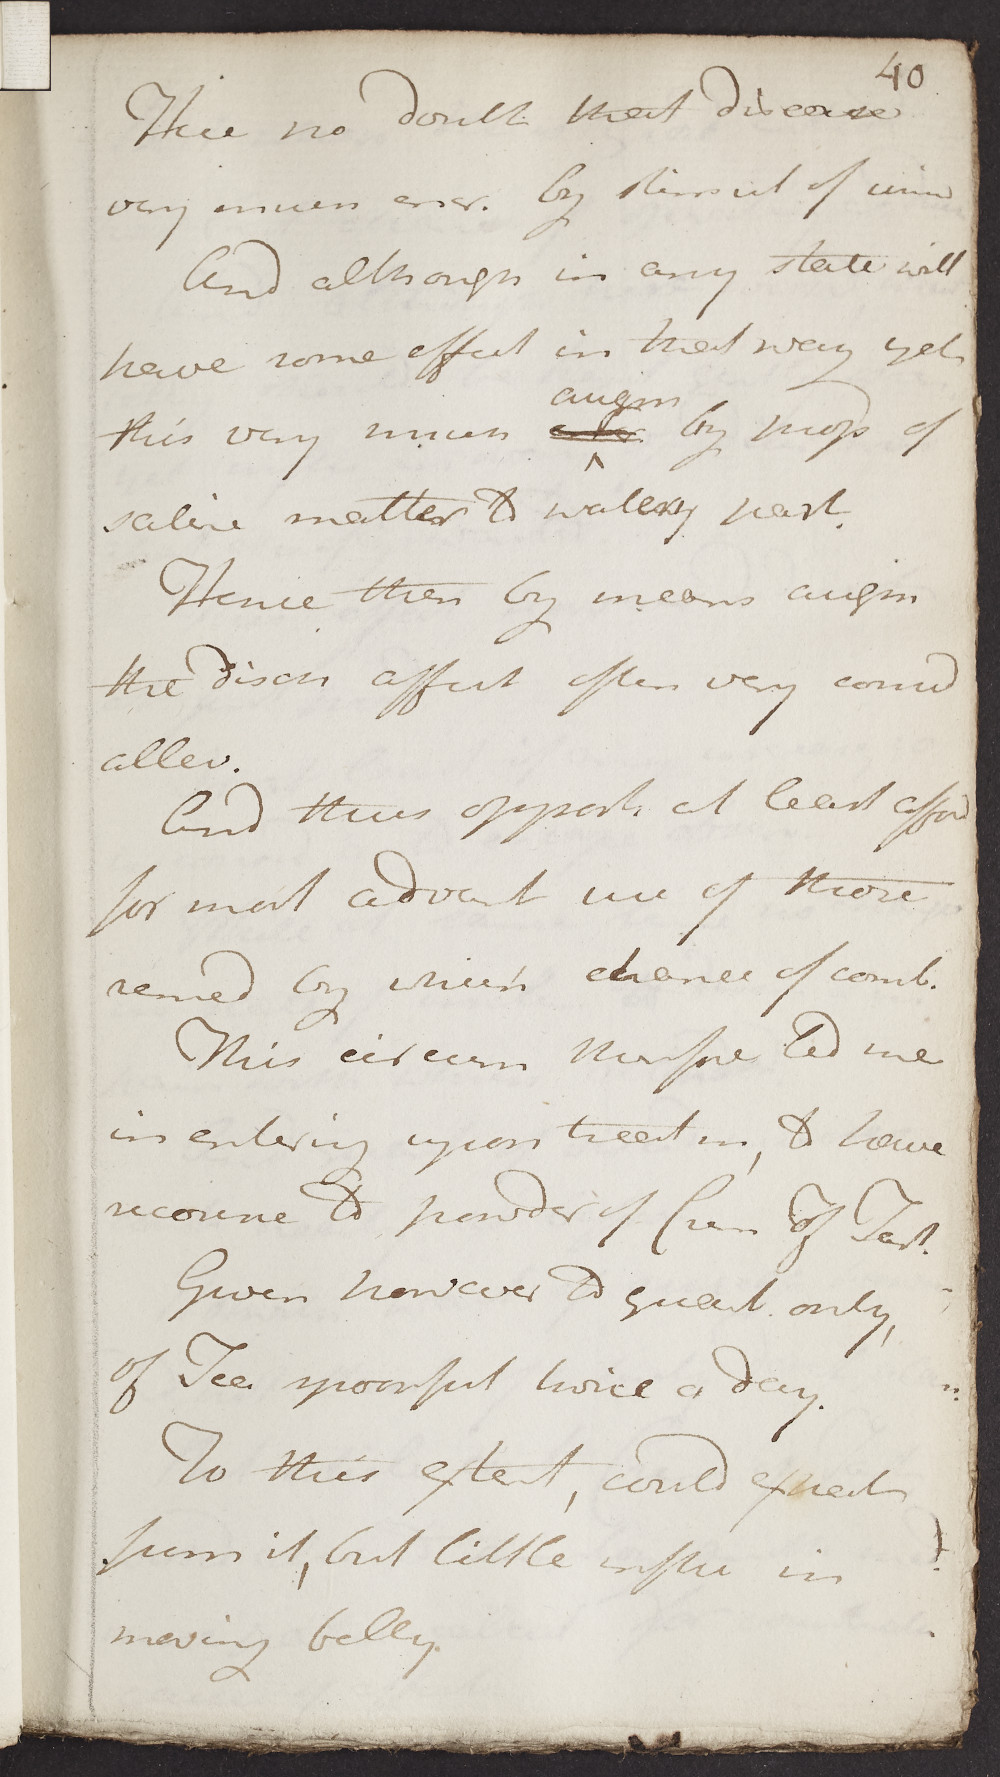 40
Ther no doubt that disease
very much incr. by stimul of urin
And although in any state will
have some effect in that way yet
augm
this very much by prop of
saline matter to watery part.
Hence then by means augm
the disch affect often very consid
allev.
And thus opport at least afford
for most advant use of those
remed by which chance of comb.
This circum therfore led me
in entering upon treatm, to have
recourse to powder of Crem of Tart.
Given however to quant. only,
of Tea spoonful twice a day.
To this extent, could expect
from it, but little influ in
moving belly.